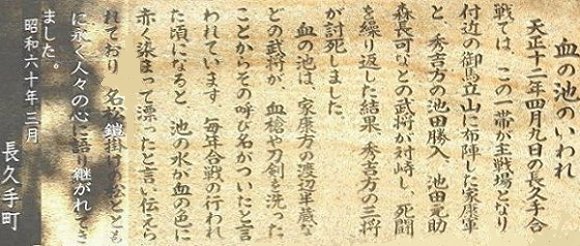 血の池のいわれ
天正十二年四月九日の長久手合
戦では、この一帯が主戦場となり
付近の御馬立山に布陣した家康軍
と、秀吉方の池田勝入、池田元助
森長可などの武将が対峙し、死闘
を繰り返した結果、秀吉方の三将
が討死しました。
血の池は、家康方の渡辺半蔵な
どの武将が、血槍や刀剣を洗った
ことからその呼び名がついたと言
われています。毎年合戦の行われ
た頃になると、池の水が血の色に
赤く染まって漂ったと言い伝えら
れており、名松鎧掛けの松ととも
に永く人々の心に語り継がれてき
ました。
昭和六十年三月
長久手町